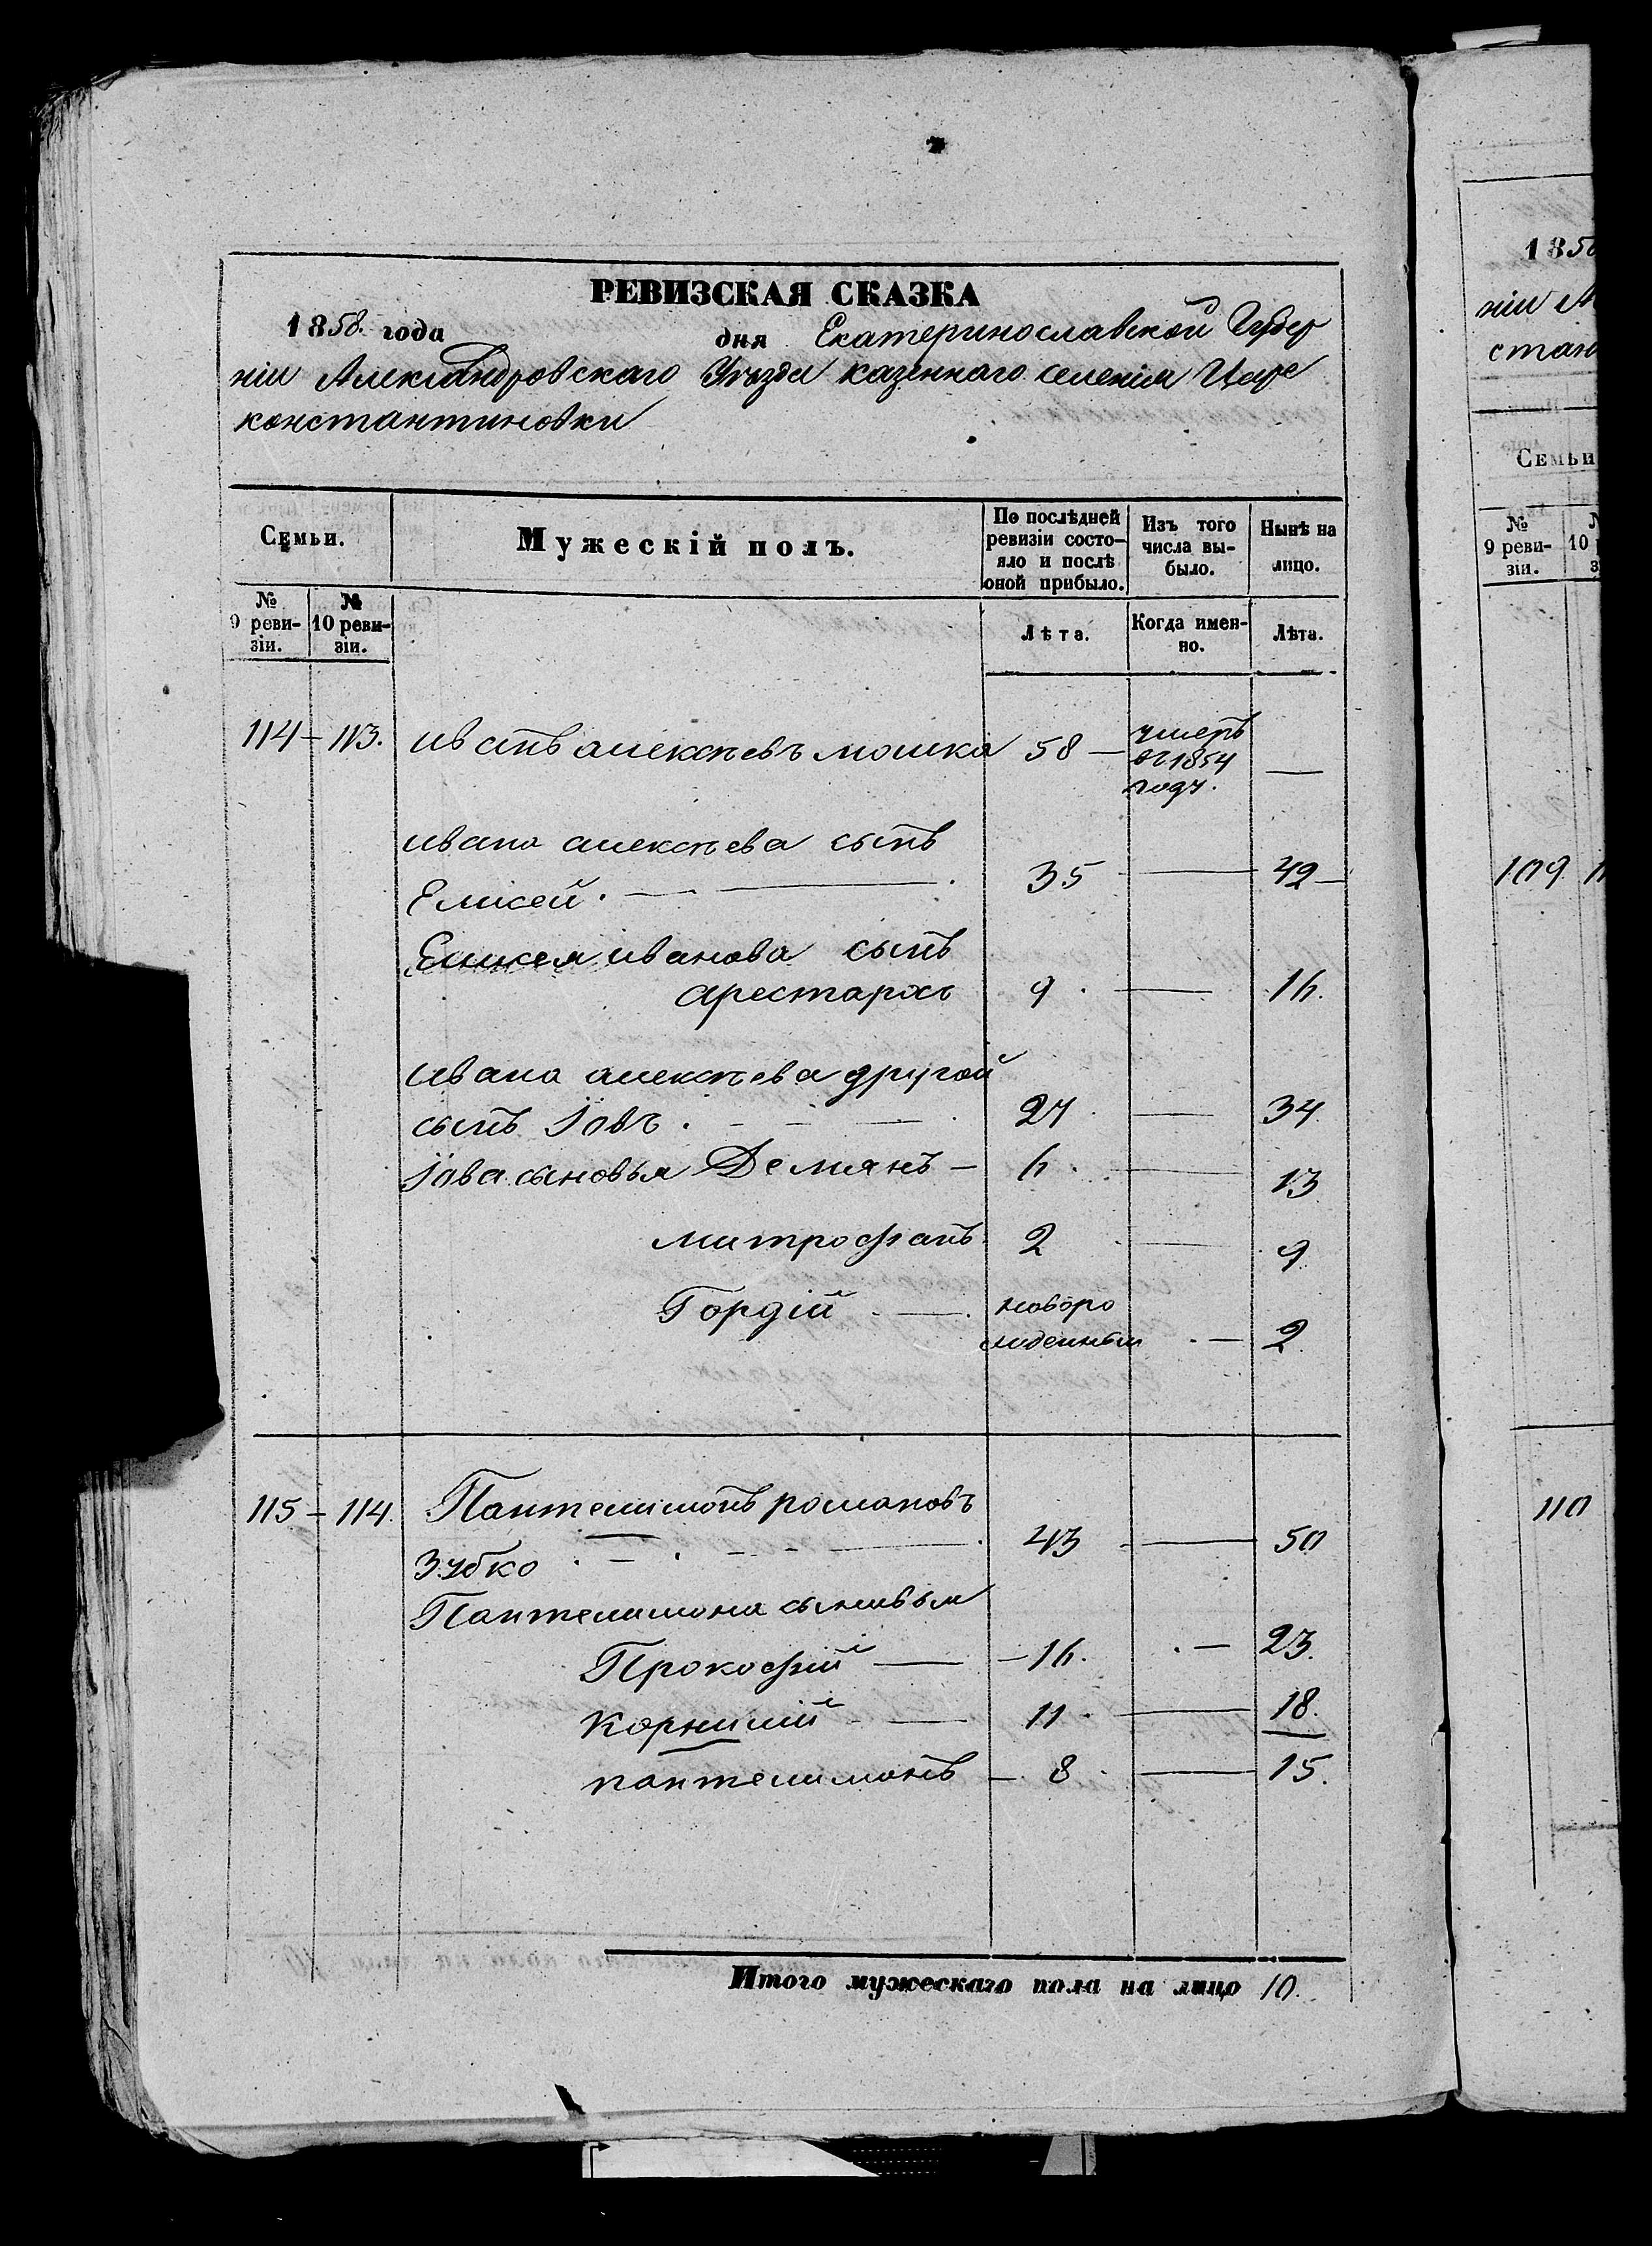 РЕВИЗСКАЯ СКАЗКА
1858. года дня Екатеринославской Губер
ніи Александровскаго Уѣзда казеннаго селенія Царе
константиновки
Семьи. Мужескій полъ. По послѣдней ревизіи состо- яло и послѣ оной прибыло. Изъ того числа вы- было. Нынѣ на лицо.
№ 9 реви- зіи. № 10 реви- зіи. Лѣта. Когда имен- но. Лѣта.
114 – 113. Иванъ алексѣевъ мошка 58 – умеръ въ 1854 году. —
Ивана алексѣева сынъ
Елисей. — — 35 — 42 –
Елисея иванова сынъ
арестархъ 9. — 16.
Ивана алексѣева другой
сынъ Іовъ. - - — 27. — 34.
Іова сыновья Демянъ – 6. — 13
митрофанъ. 2 — 9
Гордій — новоро
жденный . — 2
115 – 114. Пантелимонъ романовъ
Зубко . – . - - — 43 — 50
Пантелимона сыновья
Прокофій — – 16. . — 23.
Корнилій — 11. — 18.
пантелимонъ – 8. — 15.
Итого мужескаго пола на лицо 10.
1858
ніи А
стан
Семьи
№ 9 реви- зіи.
10
109
110